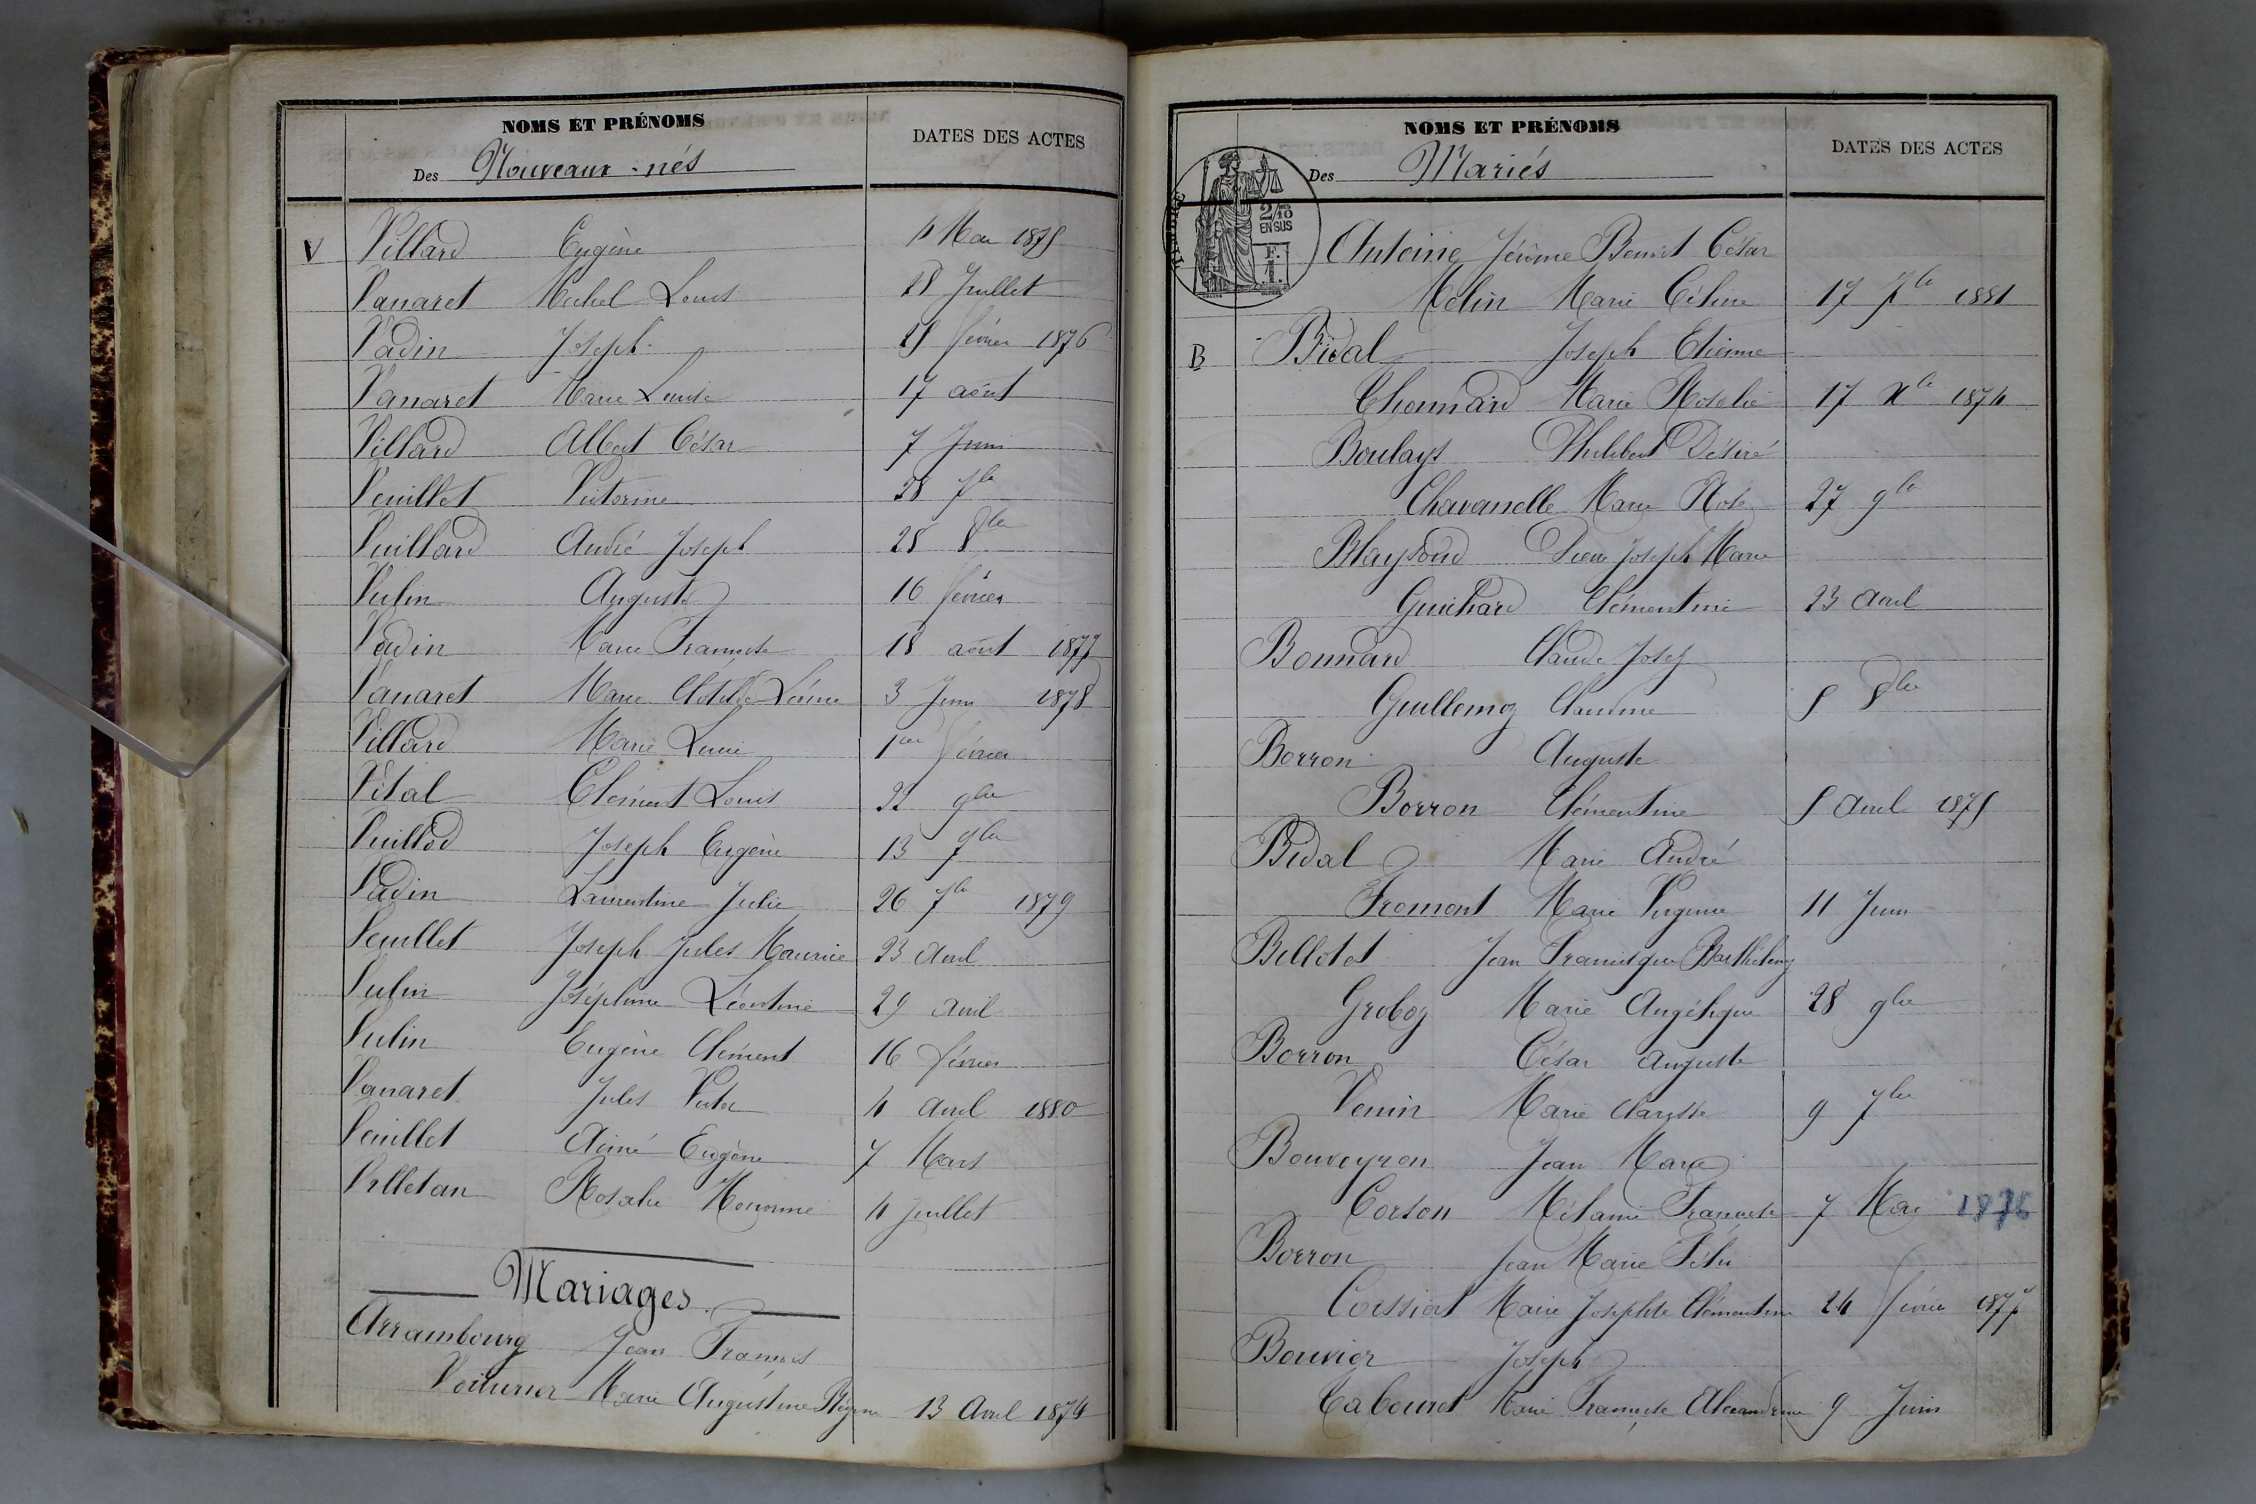 NOMS ET PRÉNOMS
DATES DES ACTES
Des Nouveaux-nés
V Villard Eugène 4 Mai 1875
Vanaret Michel Louis 28 Juillet
Vadin Joseph 25 février 1876
Vanaret Marie Louise 17 août
Villard Albert César 7 Juin
Veuillet Victorine 28 7bre
Vuillard André Joseph 28 8bre
Vulin Auguste 16 février
Vadin Marie Françoise 18 août 1877
Vanaret Marie Clotilde 3 Juin 1878
Villard Marie 1er février
Vital Clément Louis 22 9bre
Vuillod Joseph Eugène 13 7bre
Vadin Laurentine Julie 26 7bre 1879
Veuillet Joseph Jules Maurice 23 avril
Vulin Joséphine Léontine 29 avril
Vulin Eugène Clément 16 février
Vanaret Jules Victor 4 avril 1880
Veuillet Aimé Eugène 7 Mars
Villetan Rosalie 4 Juillet
Mariages
Arrambourg Jean François
Voiturier Marie Augustine 13 Avril 1874
NOMS ET PRÉNOMS
DATES DES ACTES
Des Mariés
2/10
EN SUS
F.
1.
Antoine Jérôme Benoit César
Molin Marie Céline 17 7bre 1881
B Bidal Joseph Etienne
Chonnard Marie Rosalie 17 Xbre 1874
Boulays Philibert Désiré
Chavanelle Marie Rose 27 9bre
Blaysoud Joseph Marie
Guichard Clémentine 23 avril
Bonnard Claude Josef
Guillemoz Claudine 5 8bre
Borron Auguste
Borron Clémentine 5 avril 1875
Bidal Marie André
Fromont Marie Virginie 11 Juin
Billotet Jean Barthélemy
Groboz Marie Angélique 28 9bre
Borron César Auguste
Venin Marie Clarisse 9 7bre
Bouveyron Jean Marie
Corson Mélanie Françoise 7 Mai 1876
Borron Jean Marie Félix
Marie Josephte Clémentine 24 février 1877
Bouvier Joseph
Cabouret Marie Françoise Alexandrine 9 Juin